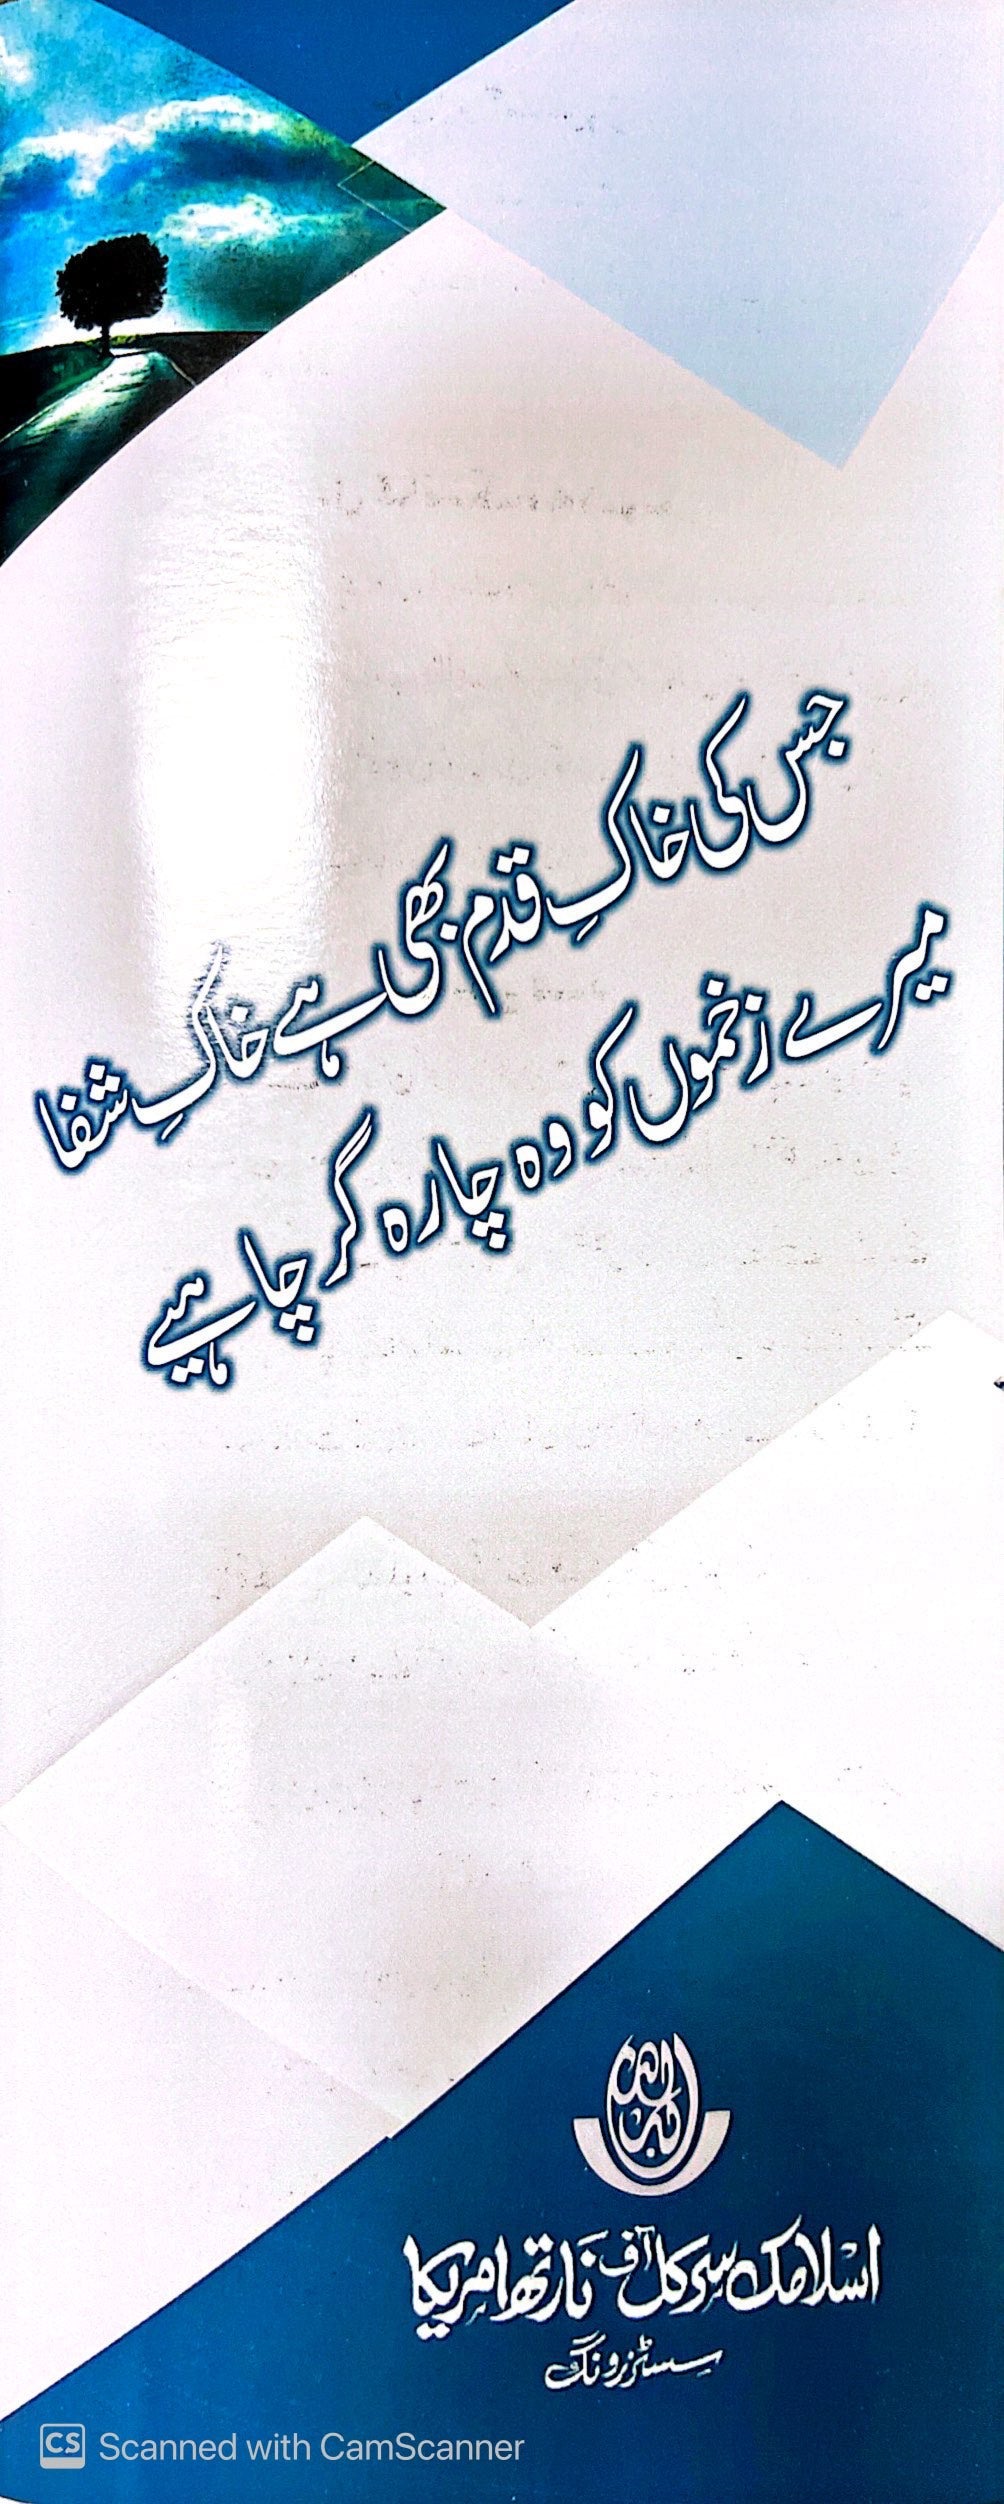 جس کی خاکِ قدم بھی ہے خاکِ شفا
میرے زخموں کو وہ چارہ گر چاہیے
اسلامک سرکل آف نارتھ امریکا
سسٹرز ونگ
CS Scanned with CamScanner